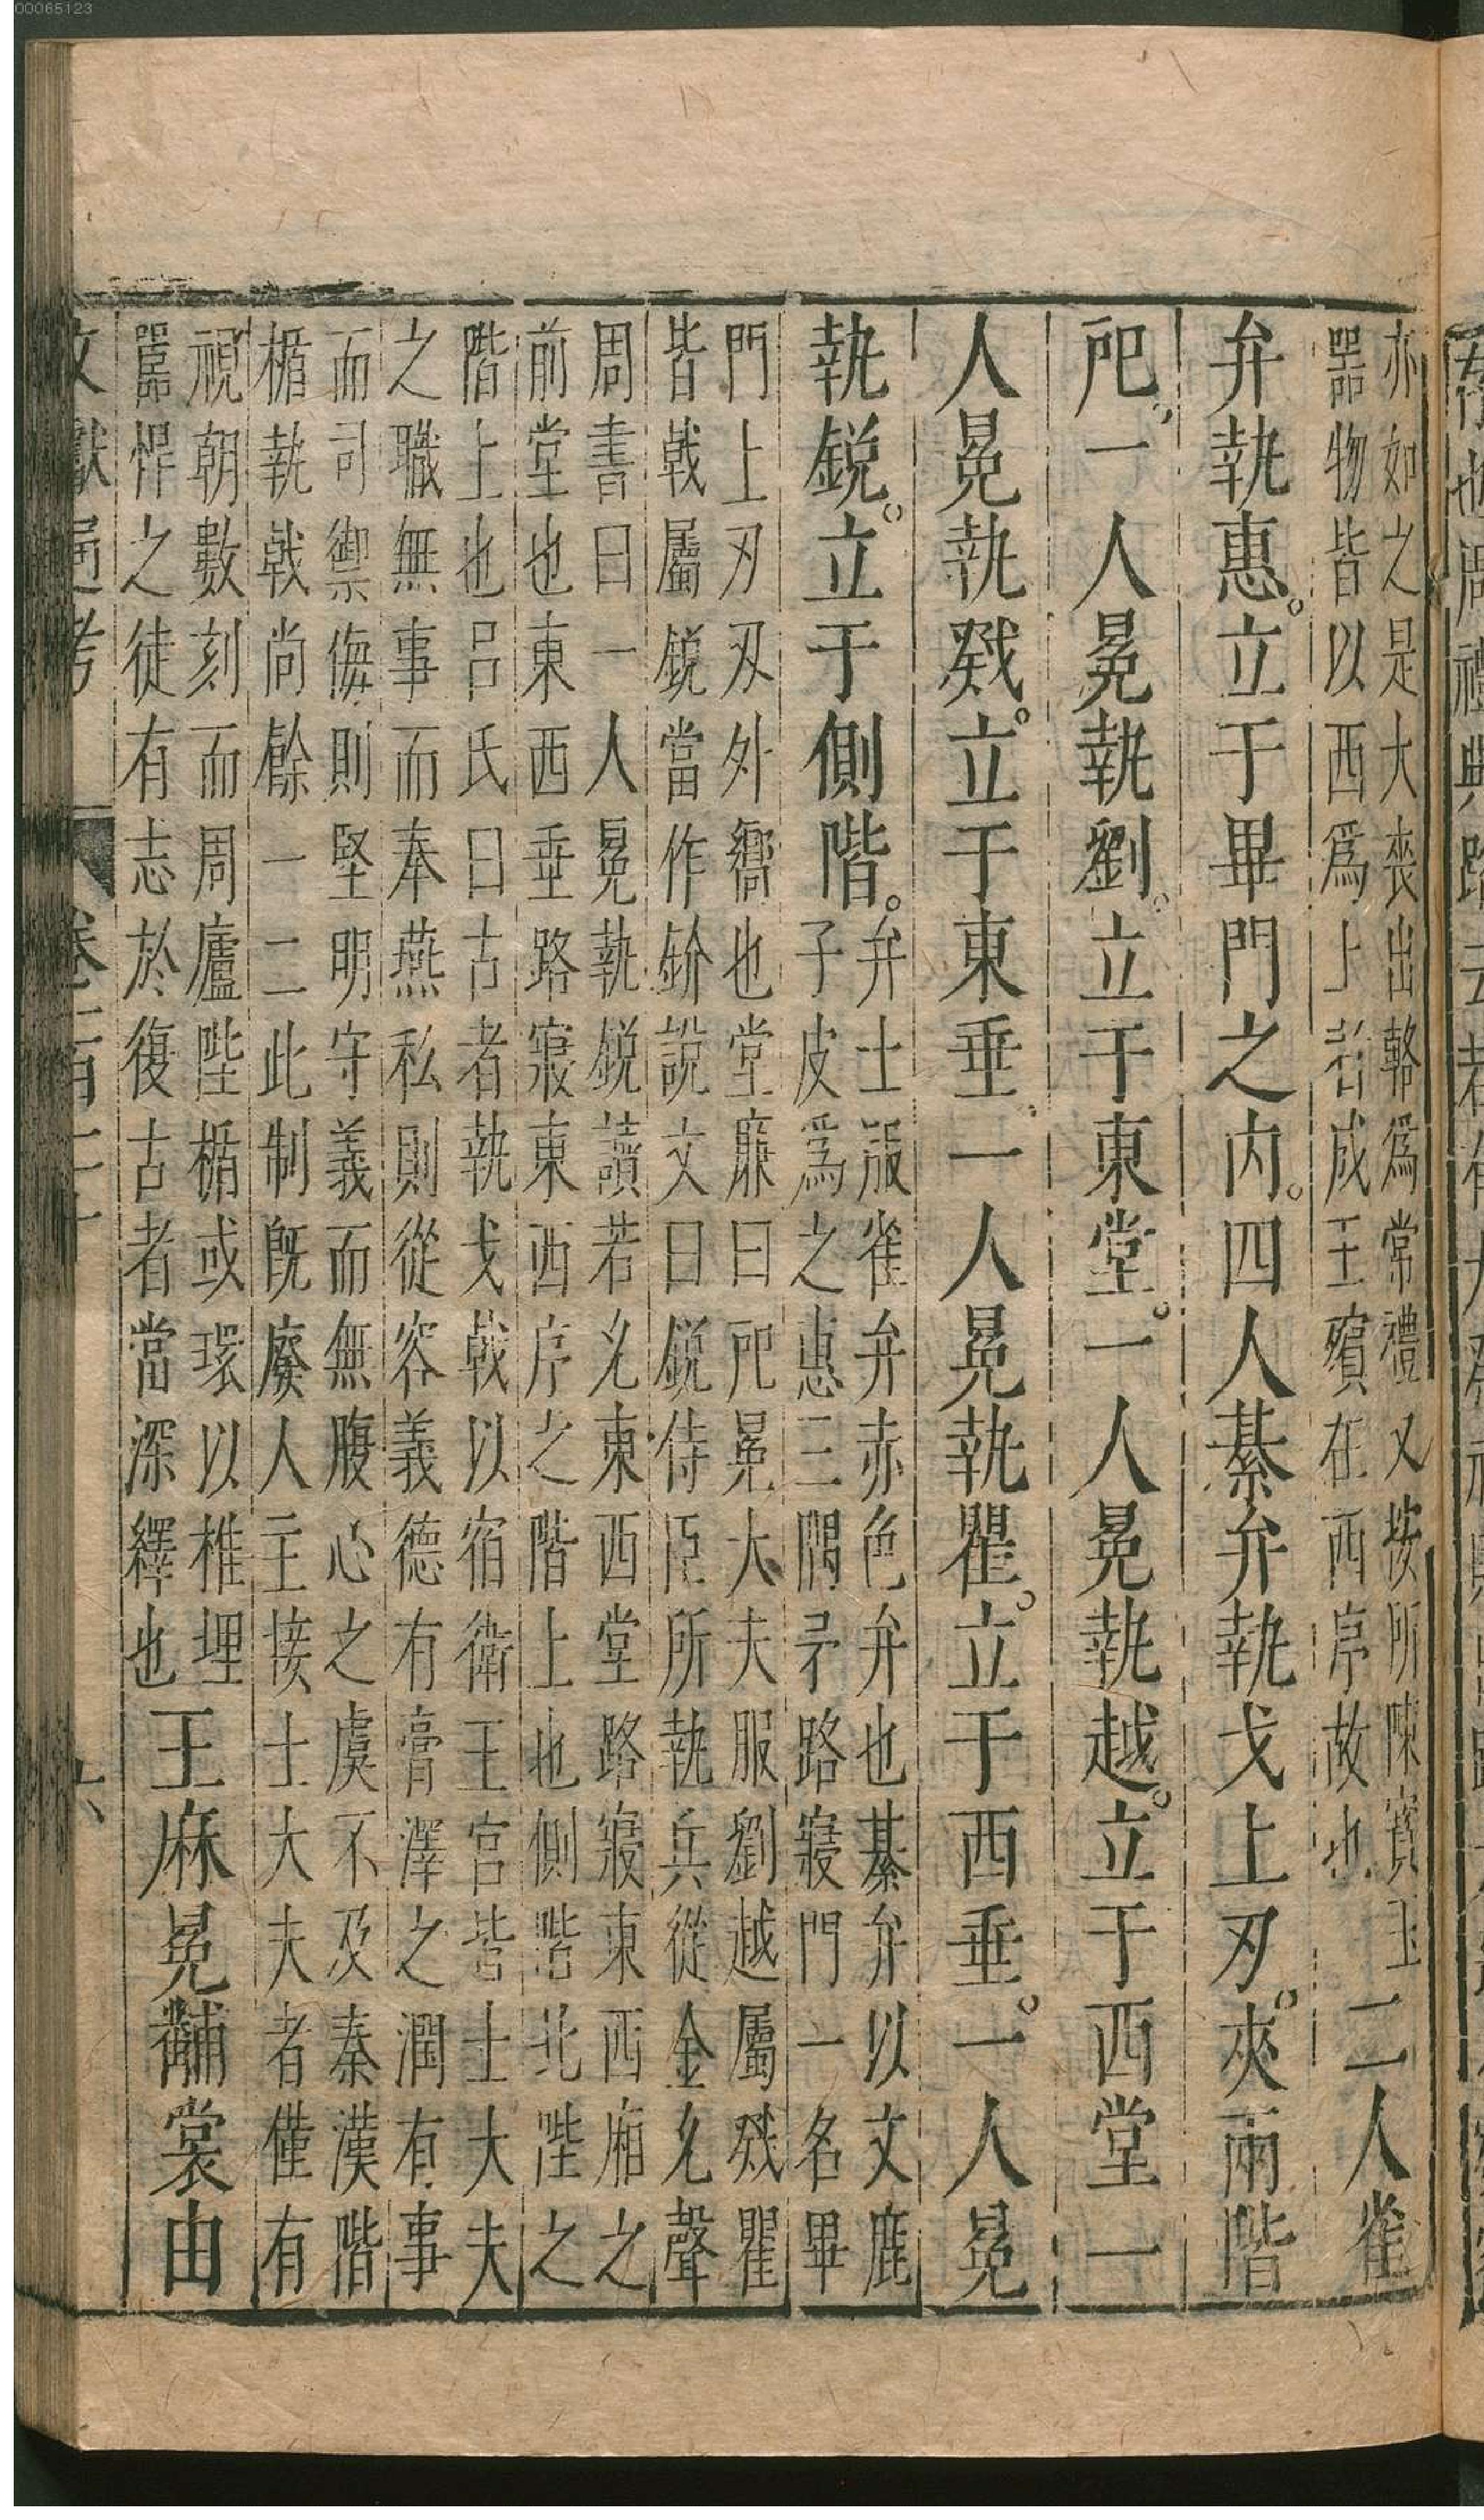 00065123
亦如之是大喪出輅爲常禮又按所陳寶玉
器物皆以西爲上者成王殯在西序故也
二人雀
弁執惠。立于畢門之內。四人綦弁執戈上刃。夾兩階
戺。一人冕執劉。立于東堂。一人冕執越。立于西堂一
人冕執戣。立于東垂一人冕執瞿。立于西垂。一人冕
執鋭。立于側階。
弁士服雀弁赤色弁也綦弁以文鹿
子皮爲之惠三隅矛路寢門一名畢
門上刃刃外嚮也堂廉曰戺冕大夫服劉越屬戣瞿
皆戟屬鋭當作鈗說文曰鋭侍臣所執兵從金允聲
周書曰一人冕執鋭讀若允東西堂路寢東西廂之
前堂也東西垂路寢東西序之階上也側階北陛之
階上也呂氏曰古者執戈戟以宿衛王宮皆士大夫
之職無事而奉燕私則從容義德有膏澤之潤有事
而司禦侮則堅明守義而無腹心之虞不及秦漢階
楯執戟尚餘一二此制旣廢人主接士大夫者僅有
視朝數刻而周廬陛楯或環以椎埋
嚚悍之徒有志於復古者當深繹也
王麻冕黼裳由
文獻通考
六